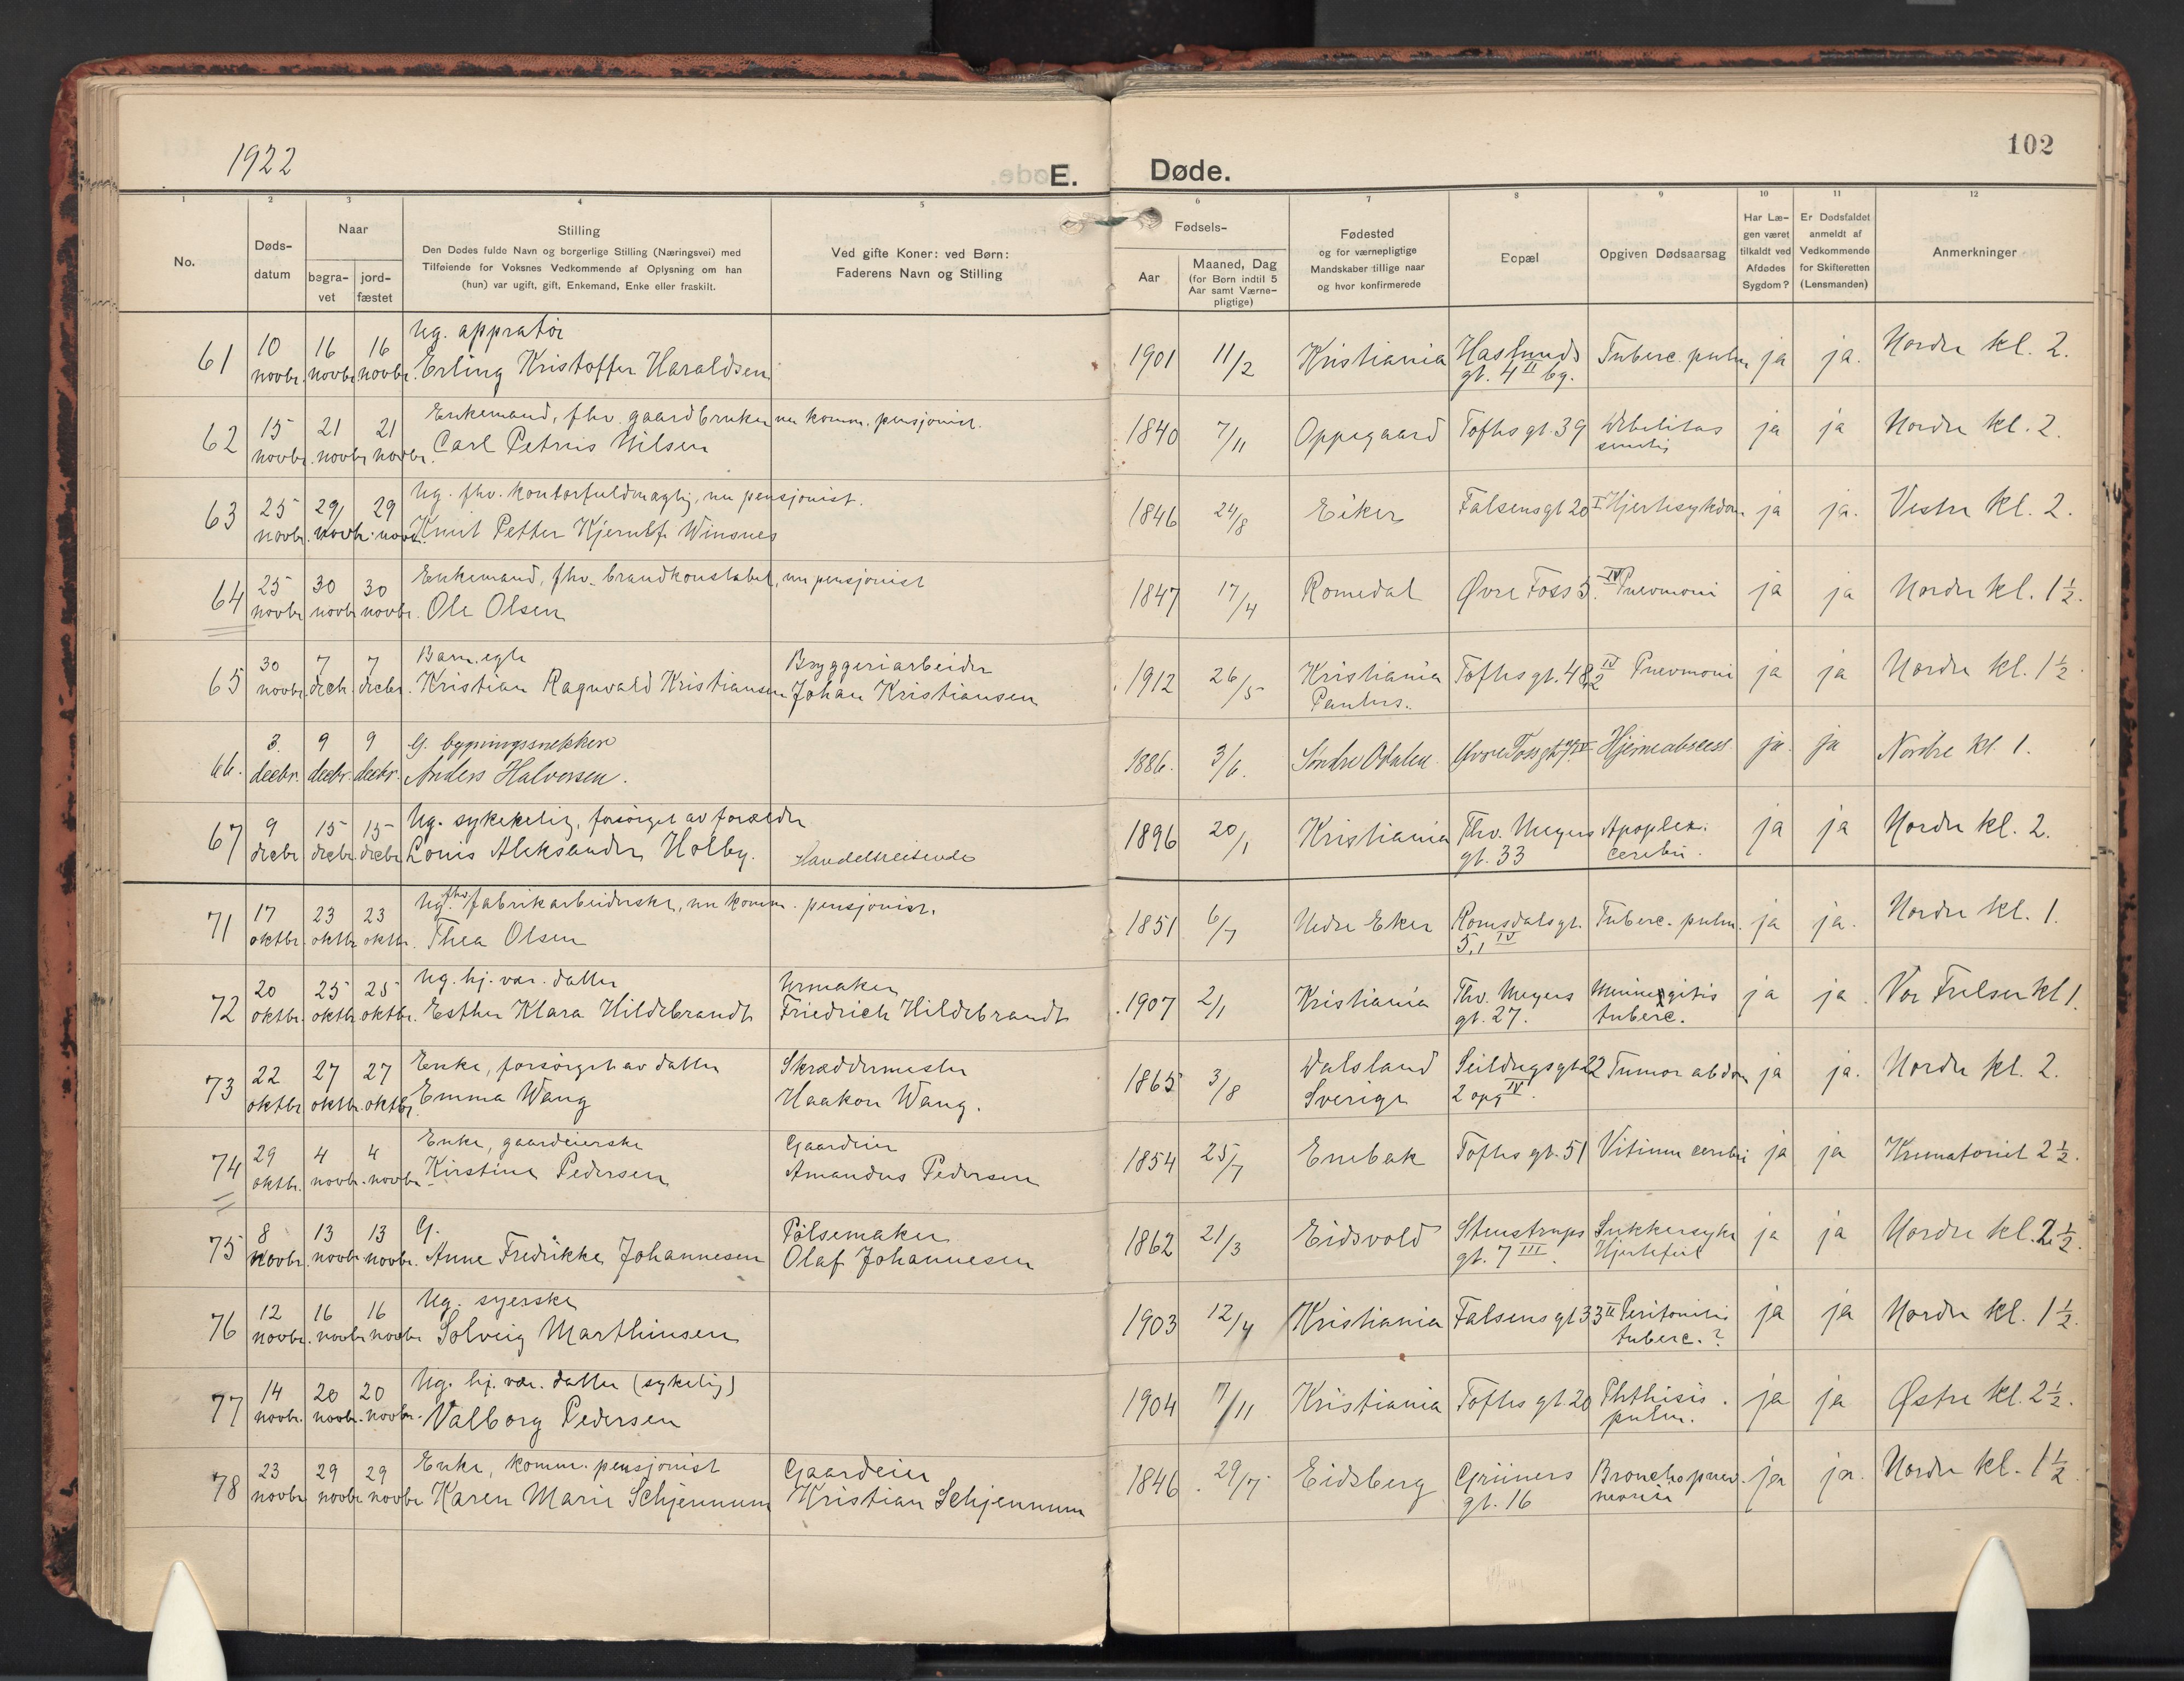 1922
E. Døde.
102
1 2 3 4 5 6 7 8 9 10 11 12
No.
Døds-
datum
Naar
begra-
vet
jord-
fæstet
Stilling
Den Dødes fulde Navn og borgerlige Stilling (Næringsvei) med
Tilføiende for Voksnes Vedkommende af Oplysning om han
(hun) var ugift, gift, Enkemand, Enke eller fraskilt.
Ved gifte Koner: ved Børn:
Faderens Navn og Stilling
Fødsels-
Aar
Maaned, Dag
(for Børn indtil 5
Aar samt Værne-
pligtige)
Fødested
og for værnepligtige
Mandskaber tillige naar
og hvor konfirmerede
Bopæl
Opgiven Dødsaarsag
Har Læ-
gen været
tilkaldt ved
Afdødes
Sygdom?
Er Dødsfaldet
anmeldt af
Vedkommende
for Skifteretten
(Lensmanden)
Anmerkninger
61 10 novbr. 16 novbr. 16 novbr. Ug. appratør
Erling Kristoffer Haraldsen
1901 11/2 Kristiania Haslunds gt. 4 II bg. Tuberc. pulm. ja ja. Nordre kl. 2.
62 15 novbr. 21 novbr. 21 novbr. Enkemand, fhv. gaardbruker nu komm. pensjonist.
Carl Petrus Nilsen
1840 7/11 Oppegaard Toftes gt. 39 Debilitas senilis ja ja Nordre kl. 2.
63 25 novbr. 29 novbr. 29 novbr. Ug. fhv. kontorfuldmægtig, nu pensjonist.
Knut Petter Kjerulf Winsnes
1846 24/8 Eiker Falsensgt 20 I Hjertesykdom ja ja. Vestre kl. 2.
64 25 novbr. 30 novbr. 30 novbr. Enkemand, fhv. brandkonstabel, nu pensjonist
Ole Olsen
1847 17/4 Romedal Øvre Foss 5. IV Pnevmoni ja ja Nordre kl. 1 1/2.
65 30 novbr. 7 decbr. 7 decbr. Barn. egte
Kristian Ragnvald Kristiansen
Bryggeriarbeider
Johan Kristiansen
1912 26/5 Kristiania Paulus. Toftes gt. 48,2 IV Pnevmoni ja ja Nordre kl. 1 1/2.
66. 3. decbr. 9 decbr. 9 decbr. G. bygningssnekker
Anders Halvorsen.
1886. 3/6. Søndre Odalen Hjerneabscess ja. ja Nordre kl. 1.
67 9 decbr. 15 decbr. 15 decbr. Ug. sykekelig, forsørget av forældre
Louis Aleksander Holby. Handelsreisende
1896 20/1 Kristiania Thv. Meyers gt. 33 Apoplex. cerebri. ja ja Nordre kl. 2.
71 17 oktbr. 23 oktbr. 23 oktbr. Ug. fhv. fabrikarbeiderske, nu komm. pensjonist.
Thea Olsen
1851 6/7 Nedre Eker Romsdalsgt. 5,1 IV Tuberc. pulm. ja ja. Nordre kl. 1.
72 20 oktbr. 25 oktbr. 25 oktbr. Ug. hj. vær. datter
Esther Klara Hildebrandt
Urmaker
Friedrich Hildebrandt
1907 2/1 Kristiania Thv. Meyers gt. 27. Meningitis tuberc. ja ja. Vor Frelser kl 1.
73 22 oktbr. 27 oktbr. 27 oktbr. Enke, forsørget av datter
Emma Wang
Skræddermester
Haakon Wang.
1865 3/8 Dalsland Sverige Seildugsgt 22 2 opg IV. Tumor abdom ja ja. Nordre kl. 2.
74 29 oktbr. 4 novbr. 4 novbr. Enke, gaardeierske
Kirstine Pedersen
Gaardeier
Amandus Pedersen
1854 25/7 Enebak Toftes gt. 51 Vitium cerebri ja ja Krematoriet 2 1/2.
75 8 novbr. 13 novbr. 13 novbr. G.
Anne Fredrikke Johannesen
Pølsemaker
Olaf Johannesen
1862 21/3 Eidsvold Stenstrups gt. 7 III. Sukkersyke Hjertefeil ja ja Nordre kl. 2 1/2.
76 12 novbr. 16 novbr. 16 novbr Ug. syerske
Solveig Marthinsen
1903 12/4 Kristiania Falsens gt 33 II Peritonitis tuberc.? ja ja Nordre kl. 1 1/2.
77 14 novbr. 20 novbr. 20 novbr. Ug. hj. vær. datter (sykelig)
Valborg Pedersen
1904 7/11 Kristiania Toftes gt. 20 Phthisis pulm. ja ja Østre kl. 2 1/2.
78 23 novbr 29 novbr 29 novbr Enke, komm. pensjonist
Karen Marie Schjennum
Gaardeier
Kristian Schjennum
1846. 29/7 Eidsberg Grüners gt. 16 Bronchopnevmonia ja ja. Nordre kl. 1 1/2.